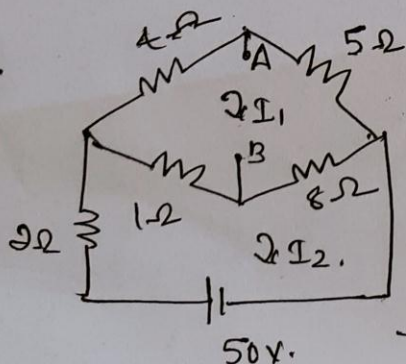 4Ω
A
5Ω
I₁
B
1Ω
8Ω
2Ω
I₂.
50V.